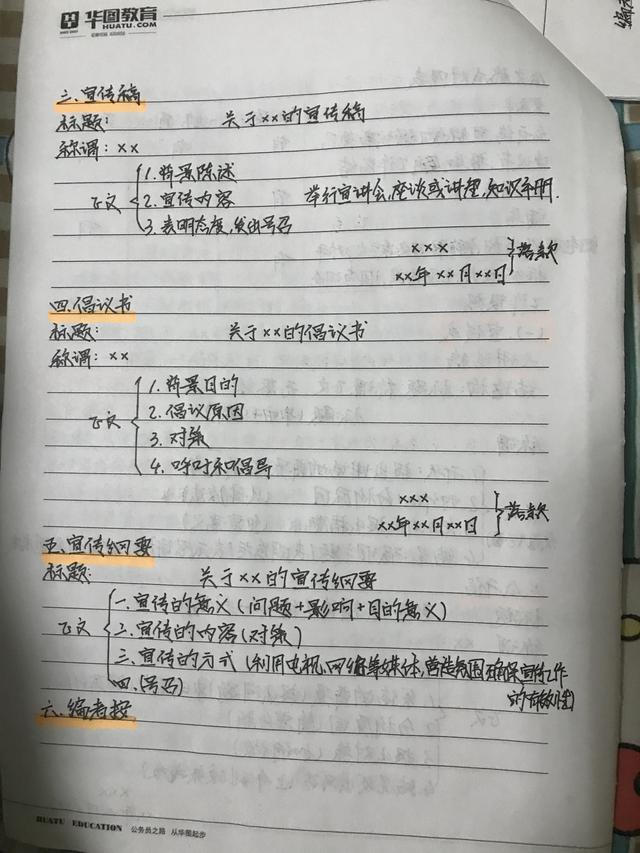 华图教育
HUATU.COM
三、宣传稿
标题: 关于××的宣传稿
称谓: ××
正文
1. 背景陈述
2. 宣传内容 举行宣讲会,座谈或讲座,知识手册.
3. 表明态度,发出号召
×××
××年××月××日
落款
四、倡议书
标题: 关于××的倡议书
称谓: ××
正文
1. 背景目的
2. 倡议原因
3. 对策
4. 呼吁和倡导
×××
××年××月××日
落款
五、宣传纲要
标题: 关于××的宣传纲要
正文
一.宣传的意义(问题+影响+目的意义)
二.宣传的内容(对策)
三.宣传的方式(利用电视,网络等媒体,营造氛围,确保宣传工作
的有效性)
四.(号召)
六、编者按
HUATU EDUCATION 公务员之路 从华图起步